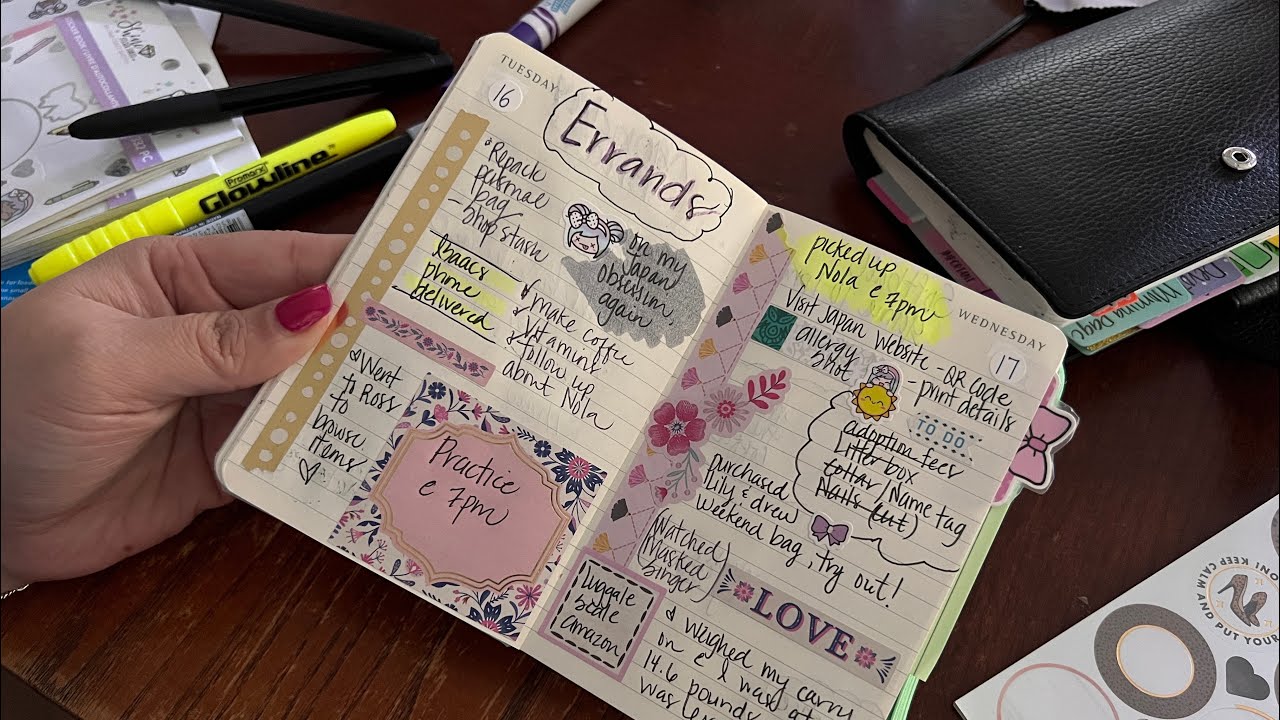 TUESDAY
16
Errands
Repack
personal
bag
- Shop stash
Isaacs
phone
delivered
on my
Japan
obsession
again
make coffee
vitamins
follow up
about Nola
Went
to Ross
to
browse
items
Practice
@ 7pm
WEDNESDAY
17
picked up
Nola @ 7pm
Visit Japan Website - QR code
- print details
allergy
shot
TO DO
adoption fees
Litter box
collar/Name tag
Nails (cut)
purchased
lily & drew
weekend bag, try out!
Watched
Masked
Singer
LOVE
Luggage
scale
amazon
& weighed my carry
on & I was at
14.6 pounds
was
Promarx
Glowline
Shine
STICKER BOOK / LIVRE D'AUTOCOLLANTS
PC
KEEP CALM AND PUT YOUR